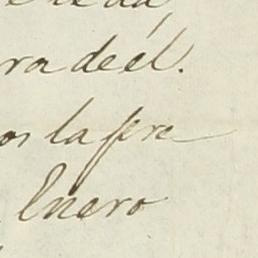 ra de él.
os la pre
Enero